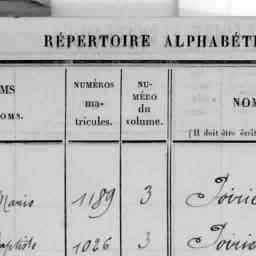 RÉPERTOIRE ALPHABÉTI
MS
OMS.
NUMÉROS
ma-
tricules.
NU-
MÉRO
du
volume.
NOM
[Il doit être écrit
Marie 1189 3 Poirie
Baptiste 1026 3 Poirie